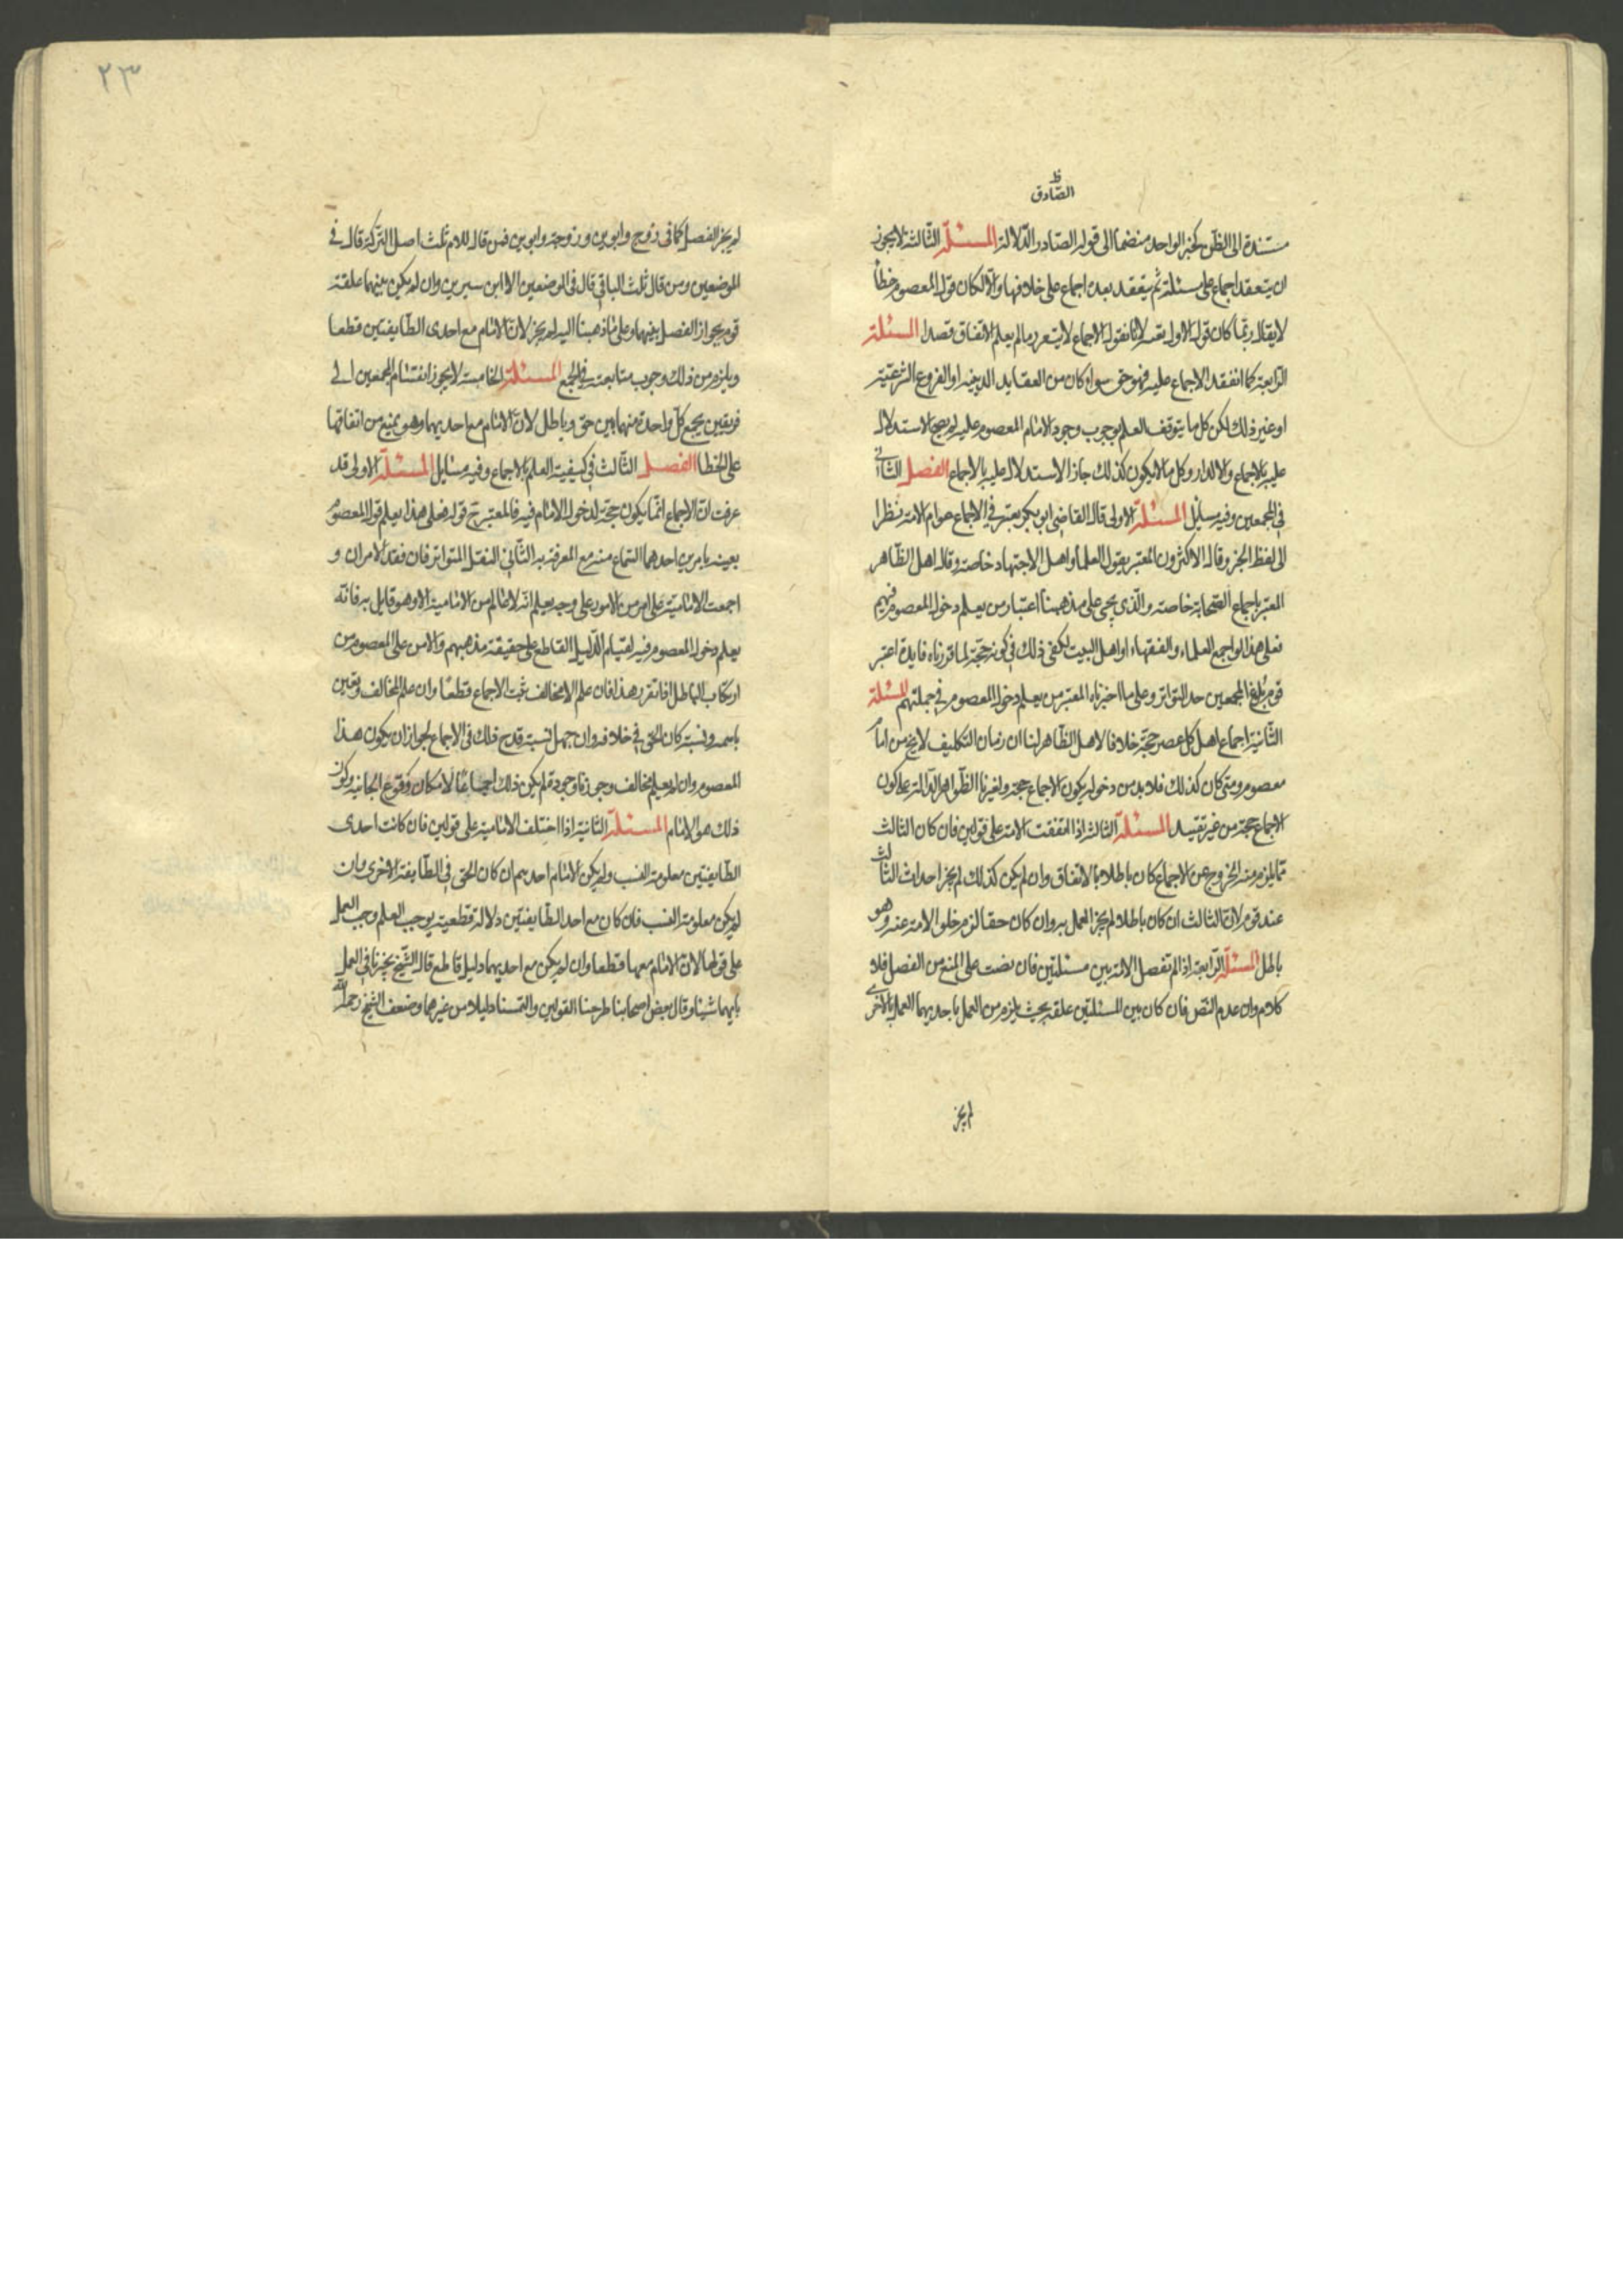 الصّادق
ظ
مستندة الى الظنّ كخبر الواحد منضما الى قول الصادر الدّلالة المسئلة الثالثة لا يجوز
ان ينعقد اجماع على مسئلة ثم ينعقد بعده اجماع على خلافها والّا لكان قول المعصوم خطأ
لا يقال ربّما كان قوله الاول تقية لانا نقول الاجماع لا يتعرد مالم يعلم الاتفاق قصدا المسئلة
الرّابعة كما انعقد الاجماع عليه فهو حق سواء كان من العقايد الدينية او الفروع الشرعيّة
او غير ذلك لكن كل ما يتوقف العلم بوجوب وجود الامام المعصوم عليه لم يصح الاستدلال
عليه بالاجماع والا لدار وكل ما لا يكون كذلك جاز الاستدلال عليه بالاجماع الفصل الثاني
في المجمعين وفيه مسايل المسئلة الاولى قال القاضي ابو بكر يعتبر في الاجماع عوام الامة نظرا
الى لفظ الخبر وقال الاكثرون المعتبر بقول العلماء واهل الاجتهاد خاصة وقال اهل الظاهر
المعتبر باجماع الصّحابة خاصة والّذي يجي على مذهبنا اعتبار من يعلم دخول المعصوم فيهم
فعلى هذا لو اجمع العلماء والفقهاء او اهل البيت لكفى ذلك في كونه حجّة لما قررناه فايدة اعتبر
قوم بلوغ المجمعين حد التواتر وعلى ما اخترناه المعتبر من يعلم دخول المعصوم في جملتهم المسئلة
الثّانية اجماع اهل كل عصر حجّة خلافا لاهل الظّاهر لنا ان زمان التكليف لا يخ من امام
معصوم ومتى كان كذلك فلا بد من دخوله ليكون الاجماع حجة ولغيرنا الظّواهر الدّالة على كون
الاجماع حجّة من غير تقييد المسئلة الثالثة اذا اتفقت الامة على قولين فان كان الثالث
مما يلزم منه الخروج عن الاجماع كان باطلا بالاتفاق وان لم يكن كذلك لم يجز احداث الثالث
عند قوم لان الثالث ان كان باطلا لم يجز العمل به وان كان حقا لزم خلو الامة عنه وهو
باطل المسئلة الرّابعة اذا لم تفصل الامة بين مسئلتين فان نصت على المنع من الفصل فلا
كلام وان عدم النّص فان كان بين المسئلتين علقة بحيث يلزم من العمل باحديهما العمل بالاخرى
لم يجز
٢٣
لم يجز الفصل كما في زوج وابوين وزوجة وابوين فمن قال للام ثلث اصل التركة قال في
الموضعين ومن قال ثلث الباقي قال في الموضعين الا ابن سيرين وان لم يكن بينهما علقة
قوم بجواز الفصل بينهما وعلى ما ذهبنا اليه لم يجز لان الامام مع احدى الطّايفتين قطعا
ويلزم من ذلك وجوب متابعته في الجميع المسئلة الخامسة لا يجوز انقسام المجمعين الى
فريقين يجمع كل واحدة منهما بين حق وباطل لان الامام مع احديهما وهو يمنع من اتفاقها
على الخطا الفصل الثّالث في كيفية العلم بالاجماع وفيه مسايل المسئلة الاولى قد
عرفت ان الاجماع انّما يكون حجّة لدخول الامام فيه فالمعتبر ح قوله فعلى هذا يعلم قول المعصوم
بعينه بامرين احدهما السّماع منه مع المعرفة به الثّاني النقل المتواتر فان فقد الامران و
اجمعت الاماميّة على امر من الامور على وجه يعلم انّه لا عالم من الاماميّة الا وهو قايل به فانّه
يعلم دخول المعصوم فيه لقيام الدّليل القاطع على حقيقة مذهبهم والامن على المعصوم من
ارتكاب الباطل اذا تقرر هذا فان علم الا مخالف ثبت الاجماع قطعا وان علم المخالف وتعين
باسمه ونسبه كان الحق في خلافه وان جهل نسبه قدح ذلك في الاجماع لجواز ان يكون هذا
المعصوم وان لم يعلم مخالف وجوزنا وجوده لم يكن ذلك اجماعا لامكان وقوع الجايز وكون
ذلك هو الامام المسئلة الثانية اذا اختلف الامامية على قولين فان كانت احدى
الطّايفتين معلومة النسب ولم يكن الامام احدهم ان كان الحق في الطّايفة الاخرى وان
لم يكن معلومة النسب فان كان مع احد الطّايفتين دلالة قطعية يوجب العلم وجب العمل
على قولها لان الامام معها قطعا وان لم يكن مع احديهما دليل قاطع قال الشّيخ يخيرنا في العمل
بايهما شينا وقال بعض اصحابنا طرحنا القولين والتمسنا دليلا من غيرهما وضعف الشيخ رحمه الله